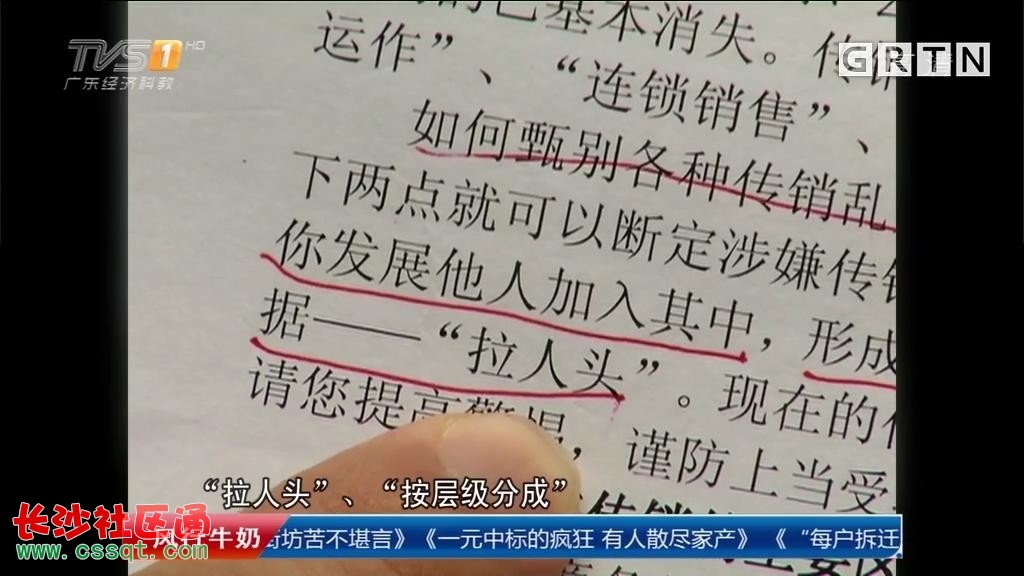 TVS1 HD
广东经济科教
GRTN
已基本消失。传销
运作”、“连锁销售”、
如何甄别各种传销乱
下两点就可以断定涉嫌传销
你发展他人加入其中，形成
据——“拉人头”。现在的传
请您提高警惕，谨防上当受
“拉人头”、“按层级分成”
长沙社区通
www.cssqt.com
风行牛奶
街坊苦不堪言》《一元中标的疯狂 有人散尽家产》《“每户拆迁